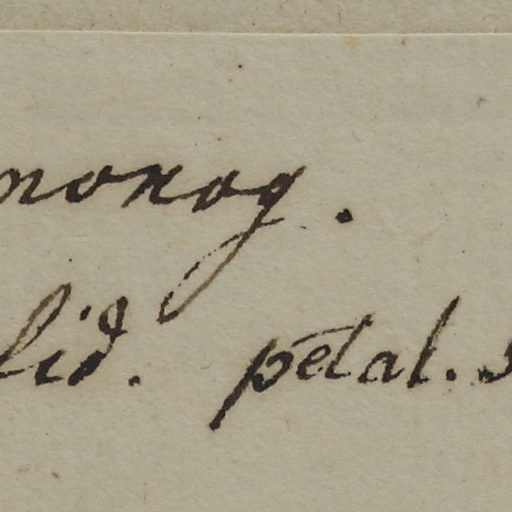 monog.
lid. petal. s